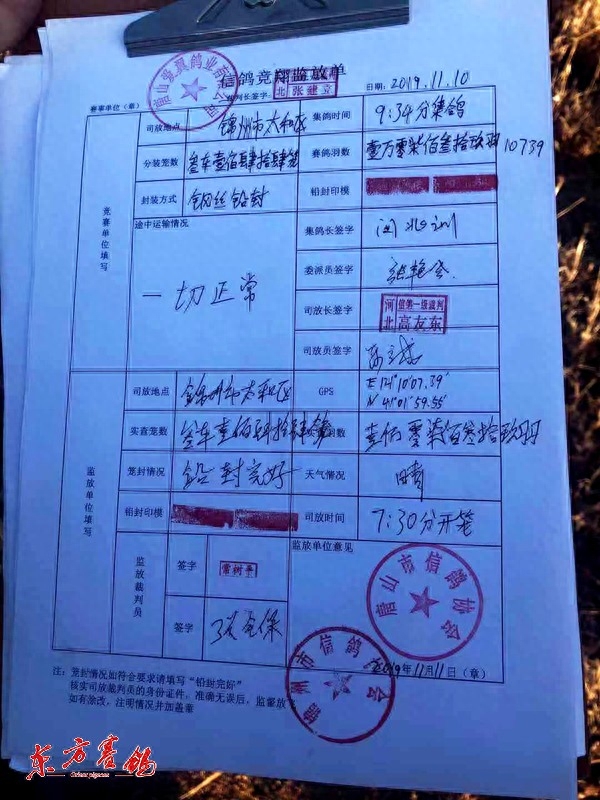 信鸽竞翔监放单
日期: 2019.11.10
赛事单位(章) 裁判长签字: 北 张建立
竞赛单位填写
司放地点 锦州市太和区 集鸽时间 9:34分集鸽
分装笼数 叁车壹佰肆拾肆笼 赛鸽羽数 壹万零柒佰叁拾玖羽 10739
封装方式 钢丝铅封 铅封印模
途中运输情况 集鸽长签字
委派员签字
一切正常
司放长签字 河北 信鸽第一级裁判 高友东
司放员签字
监放单位填写
司放地点 锦州市太和区 GPS E 121°10′07.39″
N 41°01′59.55″
实查笼数 叁车壹佰肆拾肆笼 羽数 壹万零柒佰叁拾玖羽
笼封情况 铅封完好 天气情况 晴
铅封印模 司放时间 7:30分开笼
监放裁判员
签字 常树平 监放单位意见
签字
唐山市信鸽协会
锦州市信鸽协会
2019年11月11日(章)
注: 笼封情况如符合要求请填写“铅封完好”
核实司放裁判员的身份证件，准确无误后，监督放
如有涂改，注明情况并加盖章
东方赛鸽